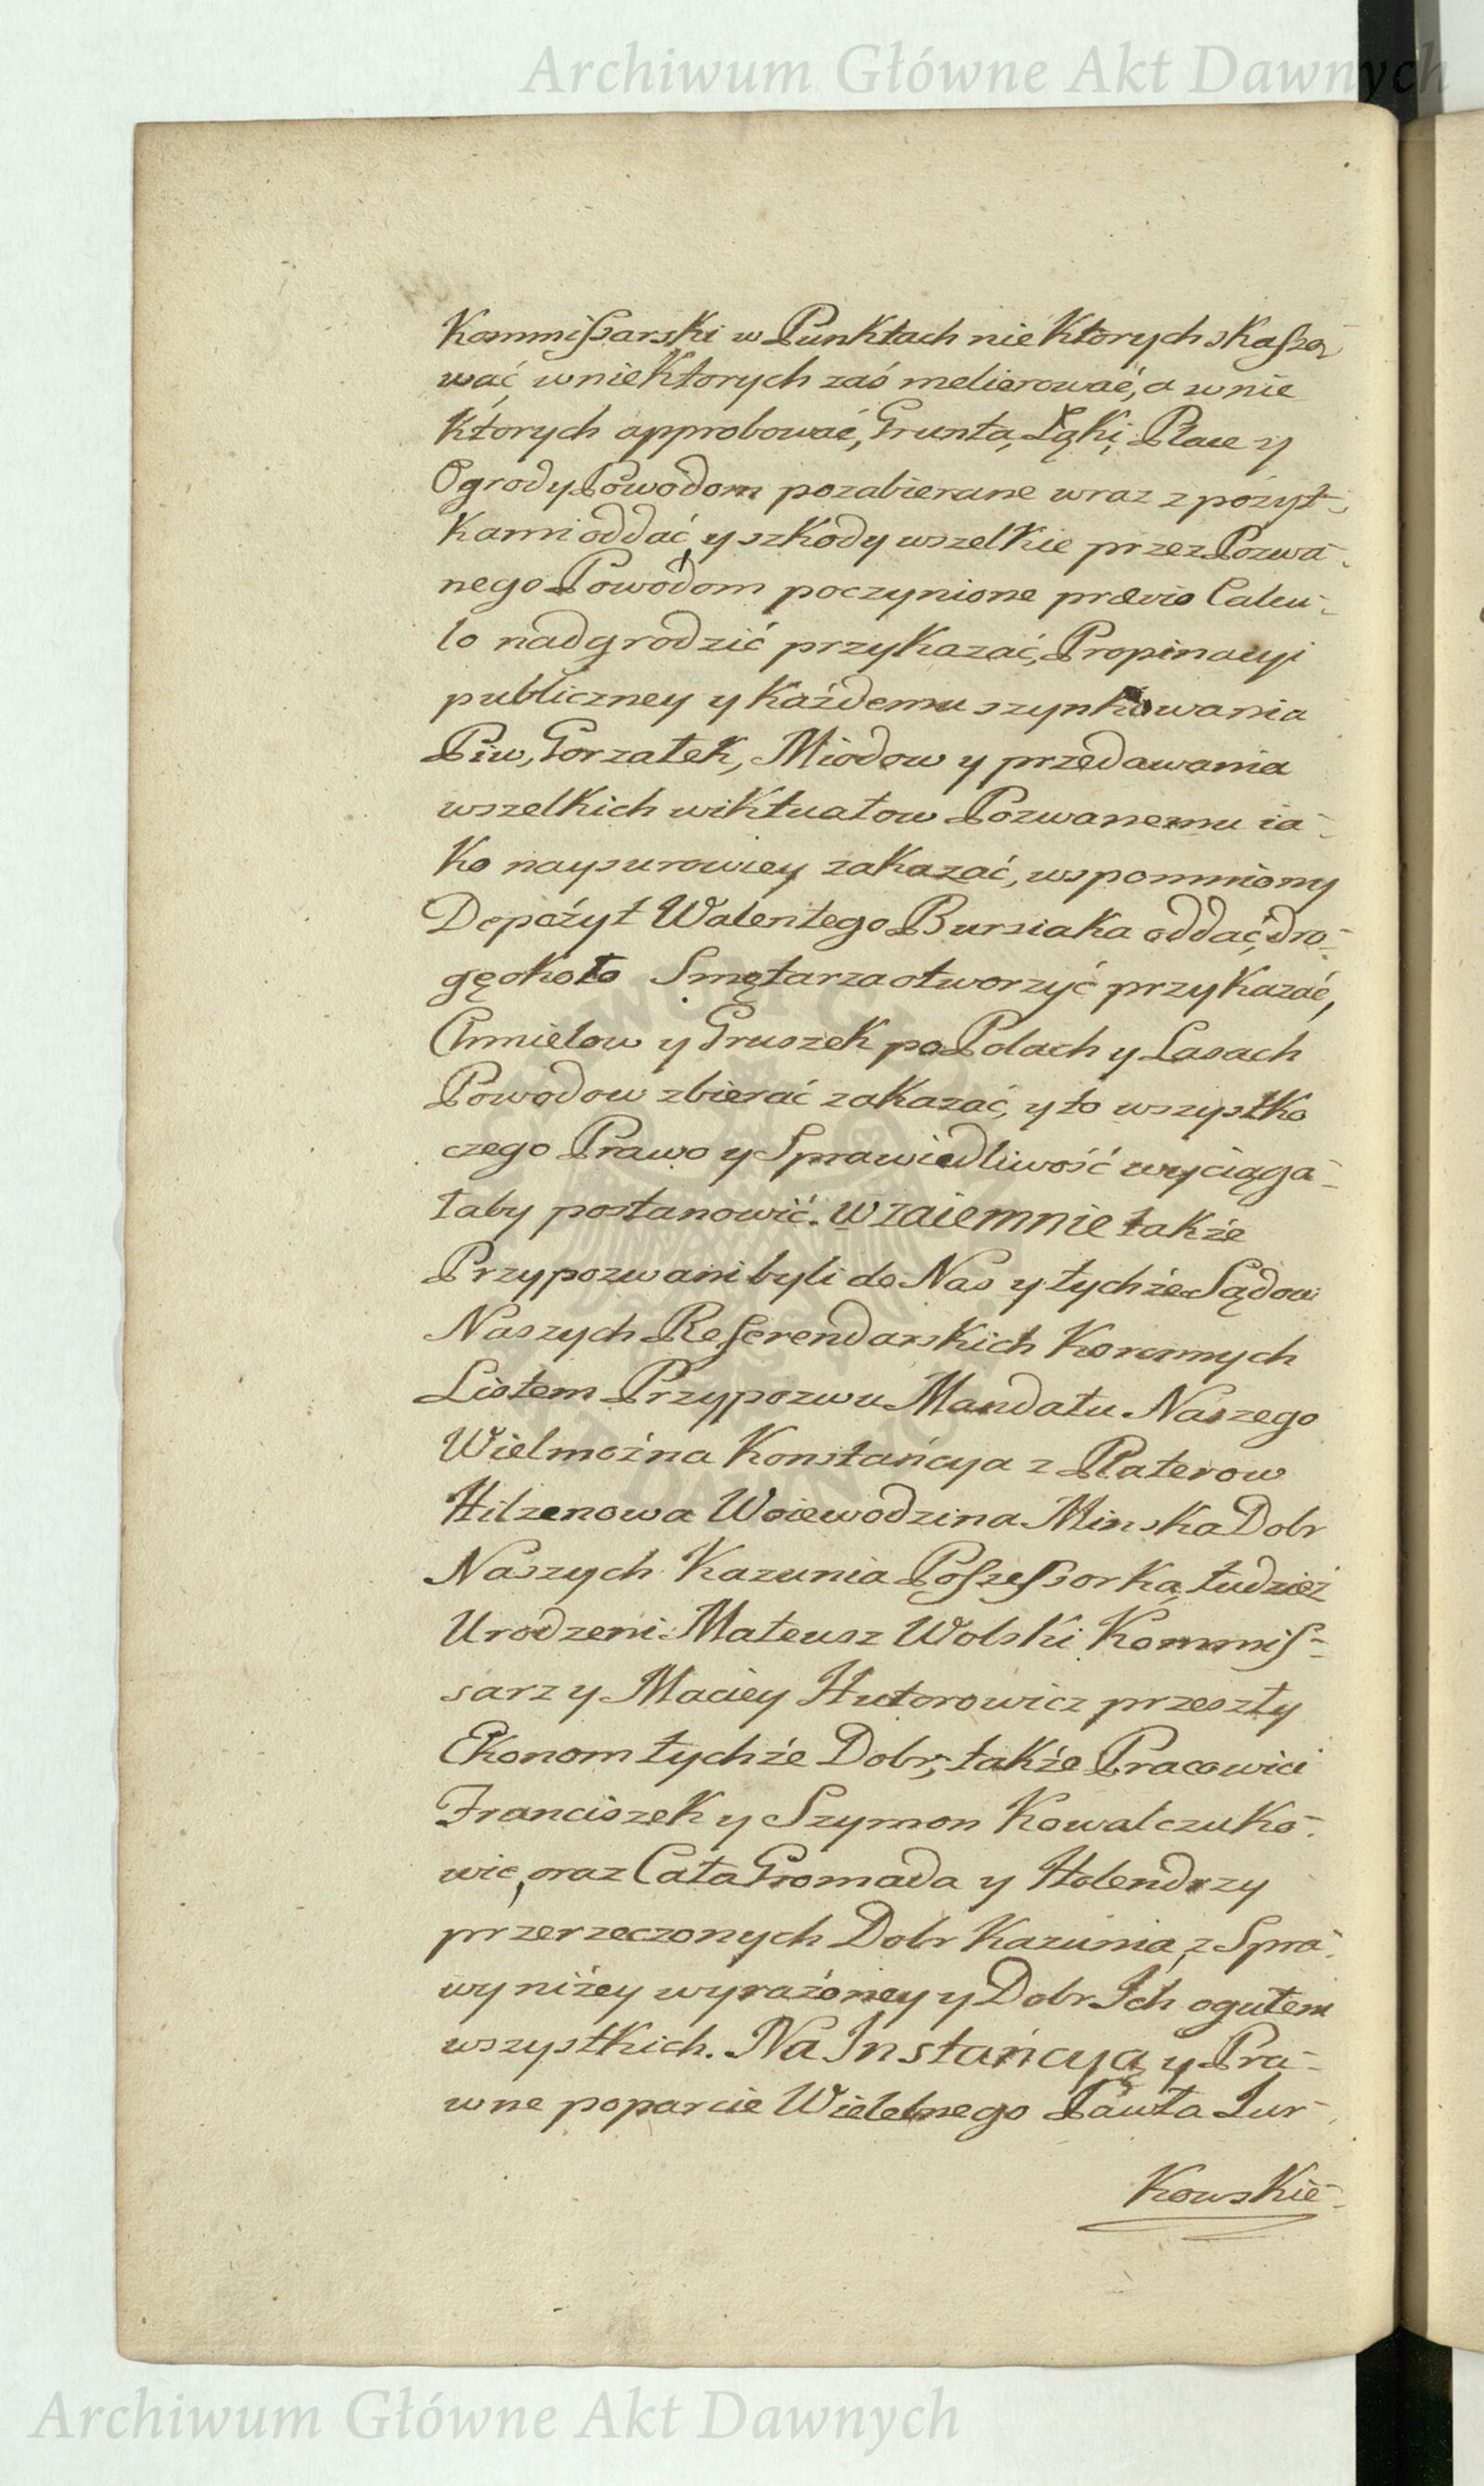 Archiwum Główne Akt Dawnych
Kommissarski w Punktach niektorych skasso-
wać, w niektorych zaś meliorować, a w nie
ktorych approbować, Grunta, Łąki, Place y
Ogrody Powodom pozabierane wraz z pożyt-
kami oddać, y szkody wszelkie przez Pozwa-
nego Powodom poczynione prævio Calcu-
lo nadgrodzić przykazać, Propinacyi
publiczney y każdemu szynkowania
Piw, Gorzałek, Miodow y przedawania
wszelkich wiktuałow Pozwanemu ia-
ko naysurowiey zakazać, wspomniony
Depozyt Walentego Bursiaka oddać, dro-
gę około Smętarza otworzyć przykazać,
Chmielow y Gruszek po Polach y Lasach
Powodow zbierać zakazać, y to wszystko
czego Prawo y Sprawiedliwość wyciąga-
łaby postanowić. Wzaiemnie także
Przypozwani byli do Nas y tychże Sądow
Naszych Referendarskich Koronnych
Listem Przypozwu Mandatu Naszego
Wielmożna Konstańcya z Platerow
Hilzenowa Woiewodzina Minska Dobr
Naszych Kazunia Possessorka, tudzież
Urodzeni Mateusz Wolski Kommis-
sarz y Maciey Hutorowicz przeszły
Ekonom tychże Dobr, także Pracowici
Franciszek y Szymon Kowalczuko-
wie, oraz Cała Gromada y Holendrzy
przerzeczonych Dobr Kazunia, z Spra-
wy niżey wyrażoney y Dobr Ich ogułem
wszystkich. Na Instańcyą y Pra-
wne poparcie Wielebnego Pawła Jur-
kowskie-
Archiwum Główne Akt Dawnych